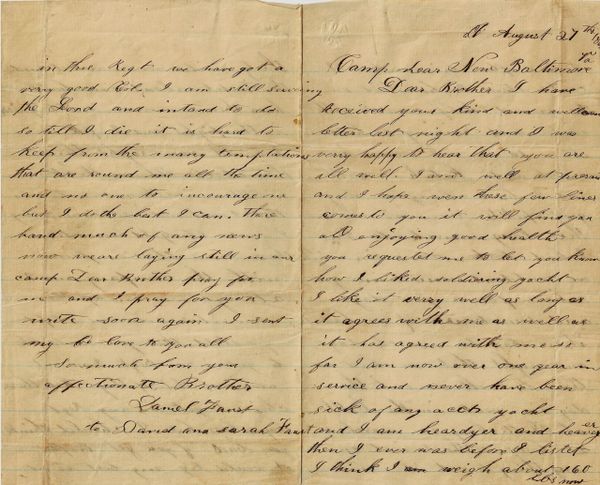 August 27th
Camp near New Baltimore Va
Dear Brother I have
received your kind and wellcom
letter last night and I was
verry happy to hear that you are
all well. I am well at presant
and I hope wen these few lines
comes to you it will find you
all enjoying good health
you requestet me to let you know
how I liked soldiering yacht
I like it verry well as long as
it agrees with me as well as
it has agreed with me so
far I am now over one year in
service and never have been
sick of any acct yacht
and I am heardyer and heavyer
then I ever was before I listet
I think I am weigh about 160
lbs now
in this Regt we have got a
very good Col. I am still serving
the Lord and intand to do
so till I die it is hard to
keep from the many temptations
that are round me all the time
and no one to incourage me
but I do the best I can. There
hand much of any news
now we are laying still in our
camp Dear Brother pray for
me and I pray for you
write soon again I sent
my love to you all
so much from your
affectionate Brother
Daniel Faust
to David and Sarah Faust